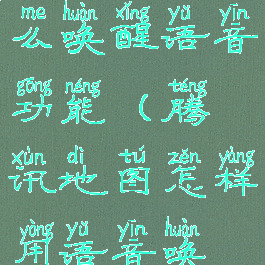 me huàn xǐng yǔ yīn
么唤醒语音
gōng néng téng
功能（腾
xùn dì tú zěn yàng
讯地图怎样
yòng yǔ yīn huàn
用语音唤